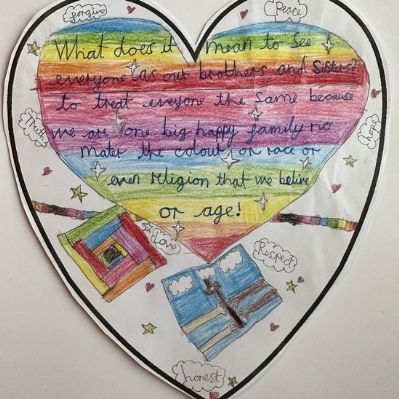 forgive
Peace
What does it mean to see
everyone as our brothers and Sisters?
to treat everyone the same because
we are one big happy family no
mater the colour or race or
even religion that we belive
or age!
Trust
Hope
Love
Respect
honest